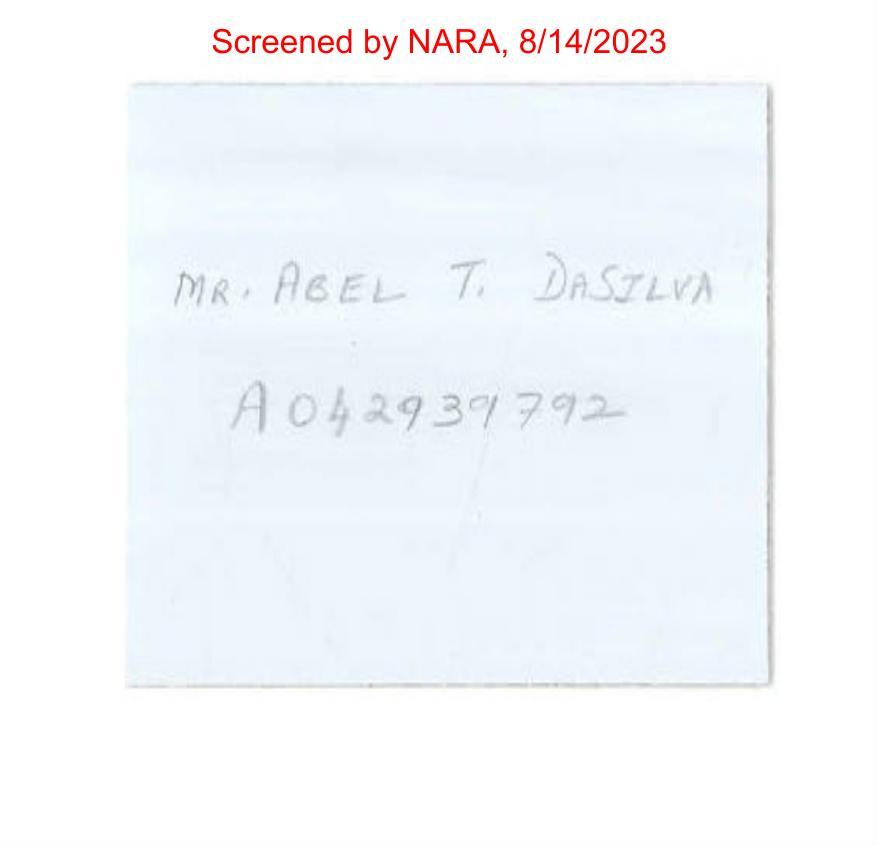 Screened by NARA, 8/14/2023
MR. ABEL T. DASILVA
A042939792